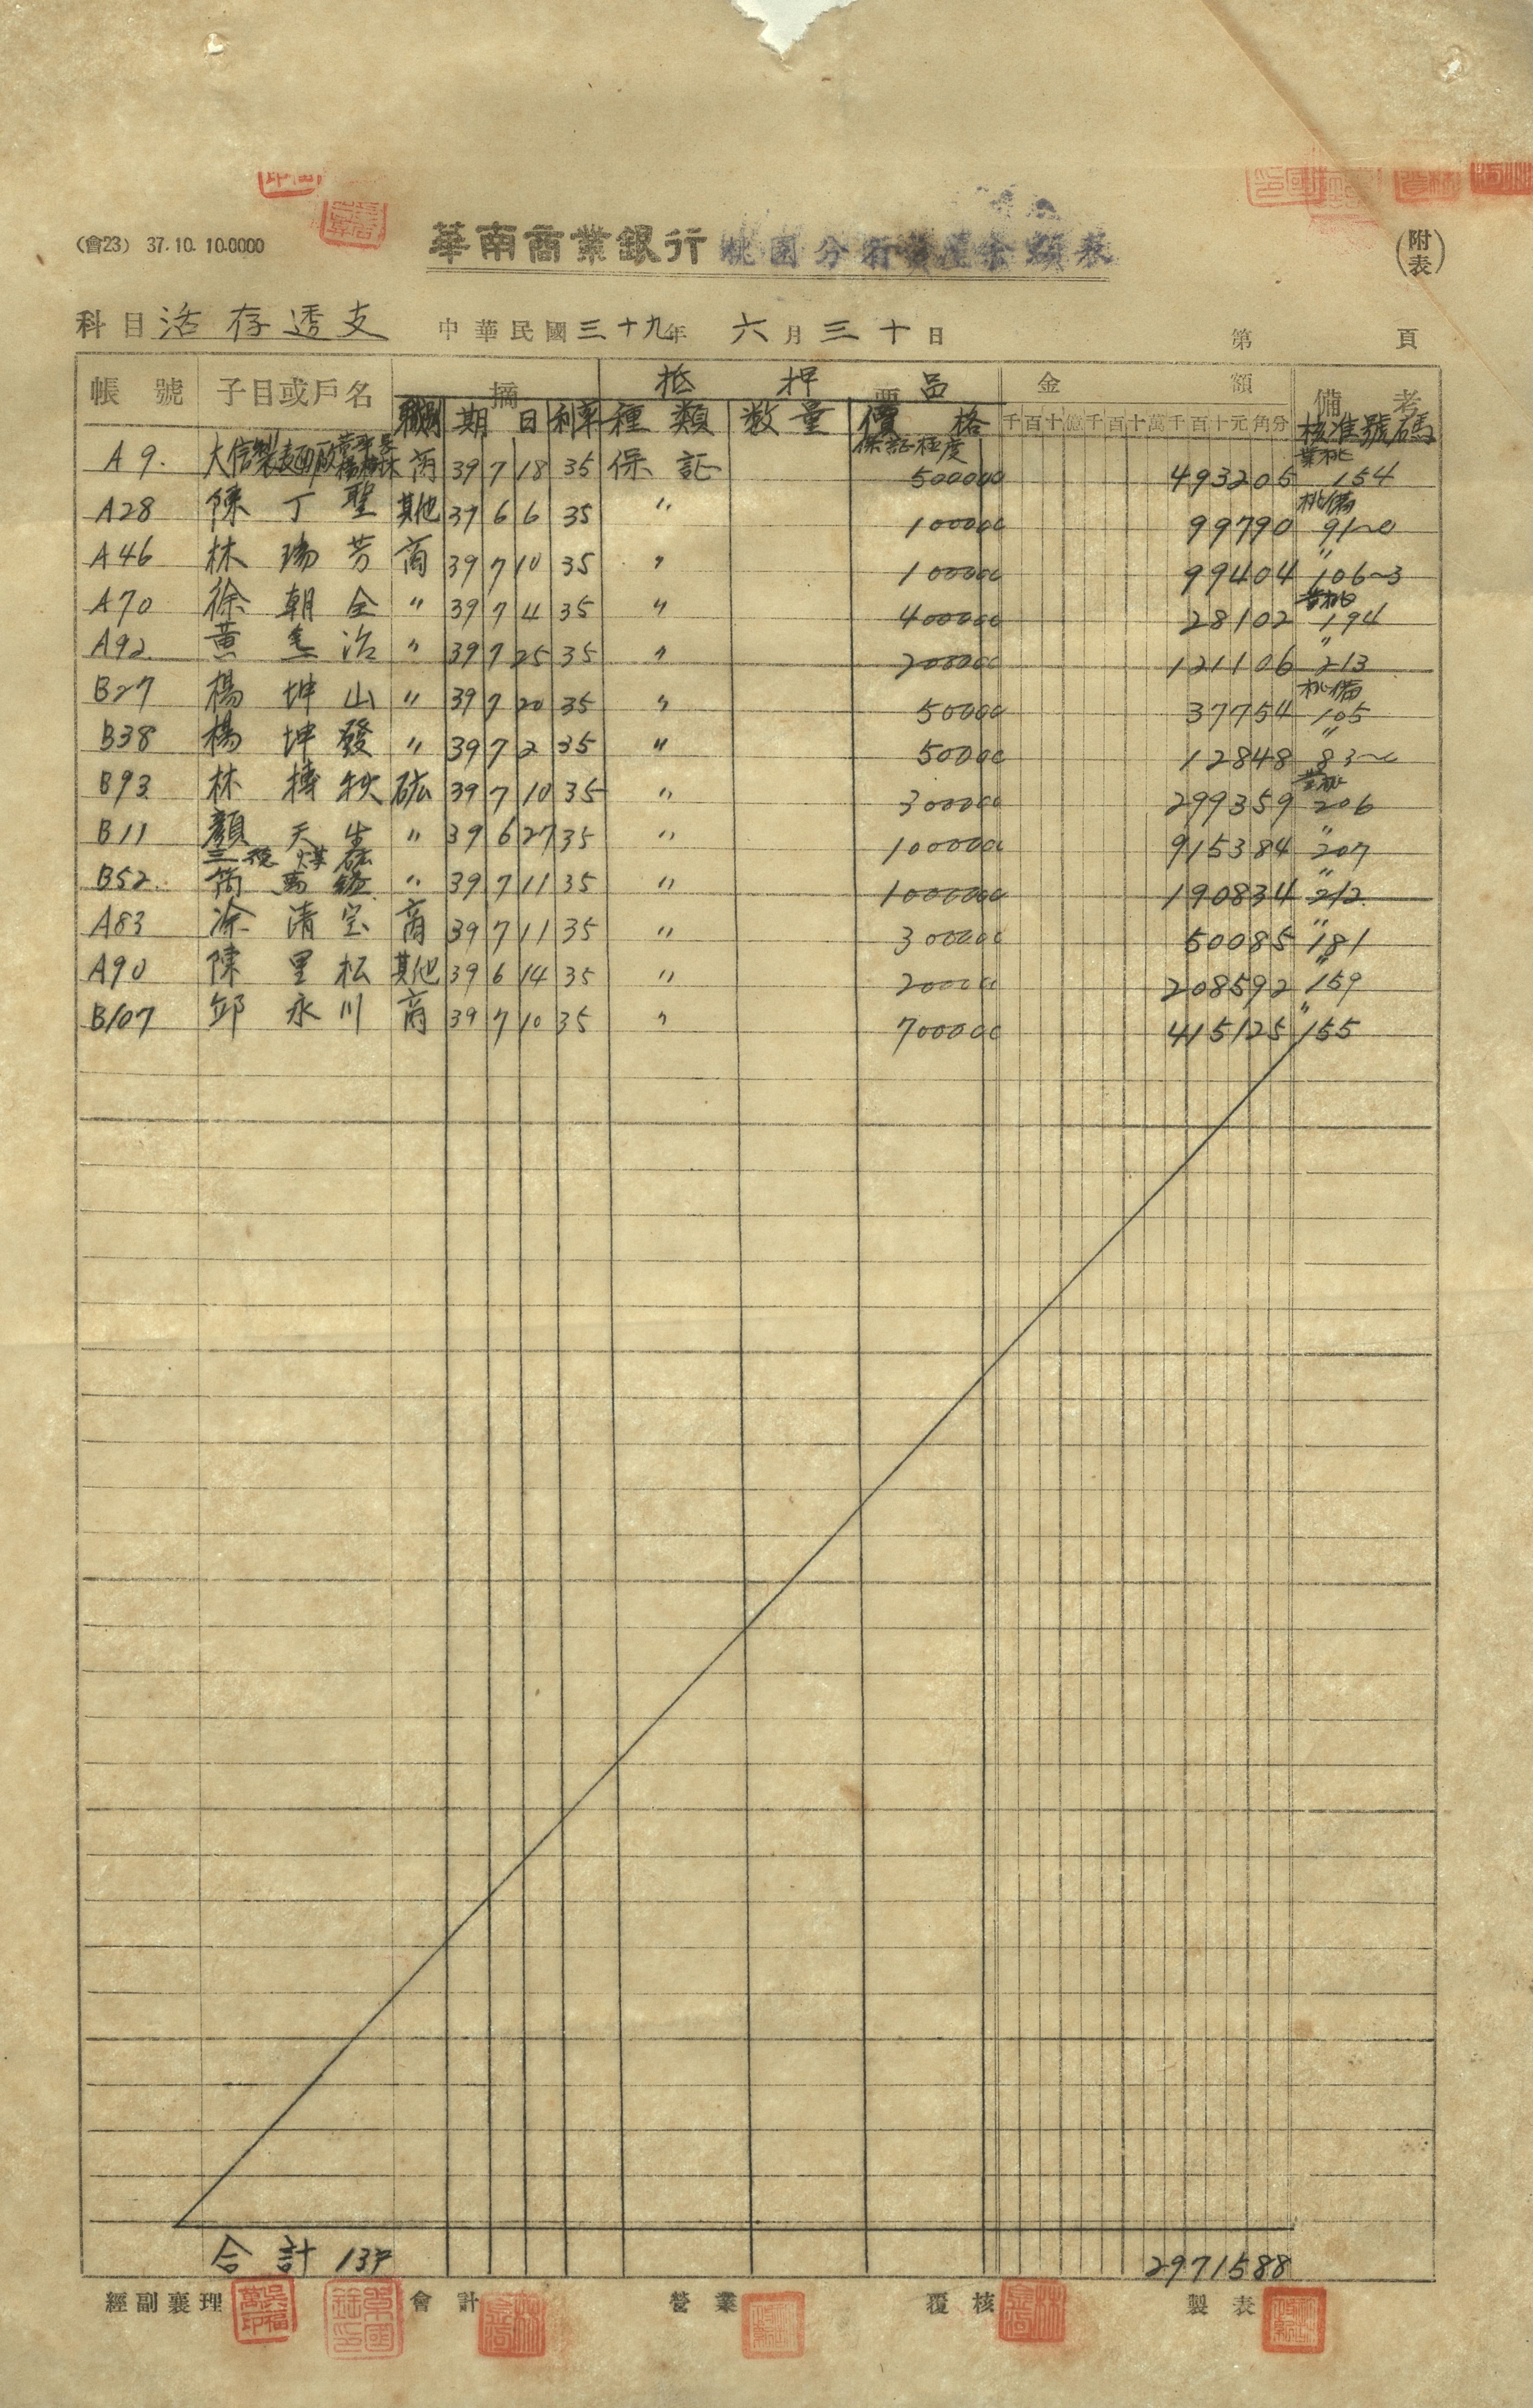 (會23) 37.10.10.0000
華南商業銀行桃園分行資產余額表
(附表)
科目 活存透支 中華民國三十九年 六月三十日 第 頁
帳號 子目或戶名 摘要 抵押品 金額 備考
職別 期日 利率 種類 数量 價格 千百十億千百十萬千百十元角分 核准號碼
保証極度 業桃
A9. 大信製麵廠 商 39 7 18 35 保証 500000 493205 154
桃備
A28 陳丁聖 其他 39 6 6 35 〃 100000 99790 91~0
A46 林瑞芳 商 39 7 10 35 〃 100000 99404 〃 106~3
業桃
A70 徐朝全 〃 39 7 4 35 〃 400000 28102 194
A92 黃 治 〃 39 7 25 35 〃 200000 121106 〃 213
桃備
B27 楊坤山 〃 39 7 20 35 〃 50000 37754 105
B38 楊坤發 〃 39 7 2 35 〃 50000 12848 〃 83~
業桃
B93 林摶秋 砿 39 7 10 35 〃 300000 299359 206
B11 顏天生 〃 39 6 27 35 〃 1000000 915384 〃 207
三 煤砿
B52. 簡萬 〃 39 7 11 35 〃 1000000 190834 〃 212
A83 涂清宝 商 39 7 11 35 〃 300000 50085 〃 181
A90 陳里松 其他 39 6 14 35 〃 200000 208592 〃 159
B107 邱永川 商 39 7 10 35 〃 700000 415125 〃 155
合計 13戶 2971588
經副襄理 會計 營業 覆核 製表
吳福萬印